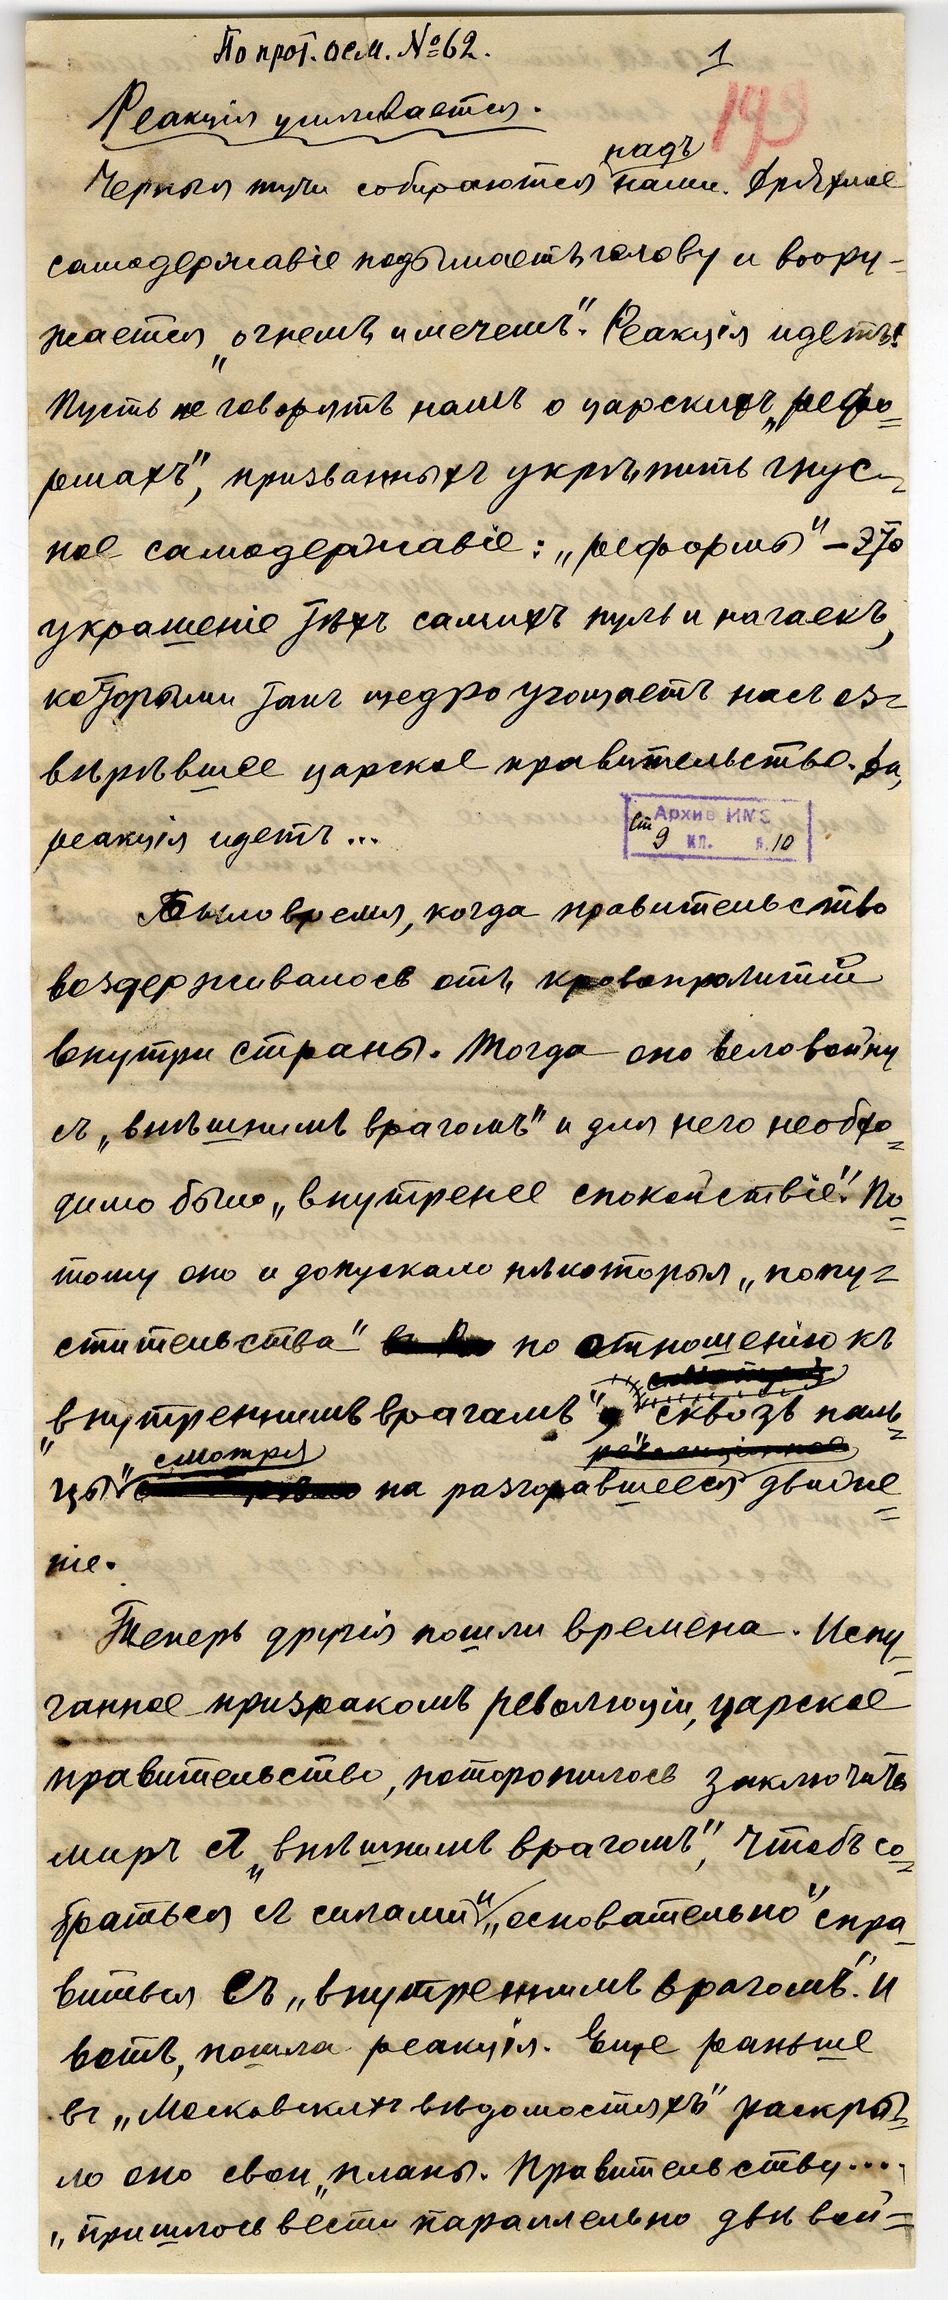 По прот. осм. №62.
1
Реакція усиливается.
Черныя тучи собираются надъ нами. Дряхлое
самодержавіе подымаетъ голову и воору-
жается „огнемъ и мечемъ". Реакція идетъ!
Пусть не говорятъ намъ о царскихъ „рефо-
рмахъ", призванныхъ укрѣпить гнус-
ное самодержавіе: „реформы" – это
украшеніе тѣхъ самихъ пуль и нагаекъ,
которыми такъ щедро угощаетъ насъ оз-
вѣрѣвшее царское правительство. Да,
реакція идетъ...
Архив ИМЭ
9 кп. л. 10
Было время, когда правительство
воздерживалось отъ кровопролитій
внутри страны. Тогда оно вело войну
съ „внѣшнимъ врагомъ" и для него необхо-
димо было „внутренее спокойствіе". По-
тому оно и допускало нѣкоторыя „попу-
стительства" по отношенію къ
„внутреннимъ врагамъ" сквозь паль-
цы" смотря на разгоравшееся движе-
ніе.
Теперь другія пошли времена. Испу-
ганное призракомъ революціи, царское
правительство, поторопилось заключить
миръ съ „внѣшнимъ врагомъ", чтобъ со-
браться съ силами и „основательно" спра-
виться съ „внутреннимъ врагомъ". И
вотъ, пошла реакція. Еще раньше
въ „Московскихъ вѣдомостяхъ" раскры-
ло оно свои „планы. Правительству....
„пришлось вести параллельно двѣ вой-